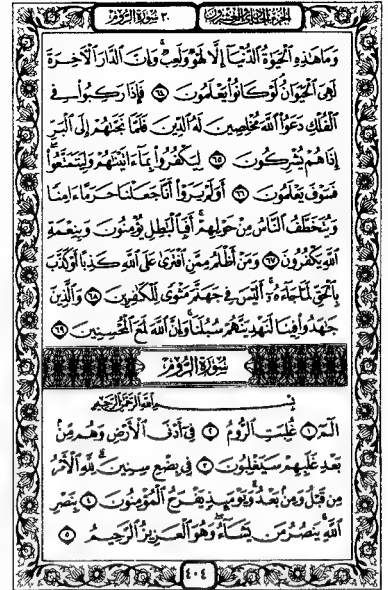 الجزء الحادي والعشرون ٣٠ سورة الروم
وَمَا هَٰذِهِ ٱلْحَيَوٰةُ ٱلدُّنْيَآ إِلَّا لَهْوٌ وَلَعِبٌ ۚ وَإِنَّ ٱلدَّارَ ٱلْءَاخِرَةَ
لَهِىَ ٱلْحَيَوَانُ ۚ لَوْ كَانُوا۟ يَعْلَمُونَ ٦٤ فَإِذَا رَكِبُوا۟ فِى
ٱلْفُلْكِ دَعَوُا۟ ٱللَّهَ مُخْلِصِينَ لَهُ ٱلدِّينَ فَلَمَّا نَجَّىٰهُمْ إِلَى ٱلْبَرِّ
إِذَا هُمْ يُشْرِكُونَ ٦٥ لِيَكْفُرُوا۟ بِمَآ ءَاتَيْنَٰهُمْ وَلِيَتَمَتَّعُوا۟ ۖ
فَسَوْفَ يَعْلَمُونَ ٦٦ أَوَلَمْ يَرَوْا۟ أَنَّا جَعَلْنَا حَرَمًا ءَامِنًا
وَيُتَخَطَّفُ ٱلنَّاسُ مِنْ حَوْلِهِمْ ۚ أَفَبِٱلْبَٰطِلِ يُؤْمِنُونَ وَبِنِعْمَةِ
ٱللَّهِ يَكْفُرُونَ ٦٧ وَمَنْ أَظْلَمُ مِمَّنِ ٱفْتَرَىٰ عَلَى ٱللَّهِ كَذِبًا أَوْ كَذَّبَ
بِٱلْحَقِّ لَمَّا جَآءَهُۥٓ ۚ أَلَيْسَ فِى جَهَنَّمَ مَثْوًى لِّلْكَٰفِرِينَ ٦٨ وَٱلَّذِينَ
جَٰهَدُوا۟ فِينَا لَنَهْدِيَنَّهُمْ سُبُلَنَا ۚ وَإِنَّ ٱللَّهَ لَمَعَ ٱلْمُحْسِنِينَ ٦٩
سورة الروم
بِسْمِ ٱللَّهِ ٱلرَّحْمَٰنِ ٱلرَّحِيمِ
الٓمٓ ١ غُلِبَتِ ٱلرُّومُ ٢ فِىٓ أَدْنَى ٱلْأَرْضِ وَهُم مِّنۢ
بَعْدِ غَلَبِهِمْ سَيَغْلِبُونَ ٣ فِى بِضْعِ سِنِينَ ۗ لِلَّهِ ٱلْأَمْرُ
مِن قَبْلُ وَمِنۢ بَعْدُ ۚ وَيَوْمَئِذٍ يَفْرَحُ ٱلْمُؤْمِنُونَ ٤ بِنَصْرِ
ٱللَّهِ ۚ يَنصُرُ مَن يَشَآءُ ۖ وَهُوَ ٱلْعَزِيزُ ٱلرَّحِيمُ ٥
٤٠٤